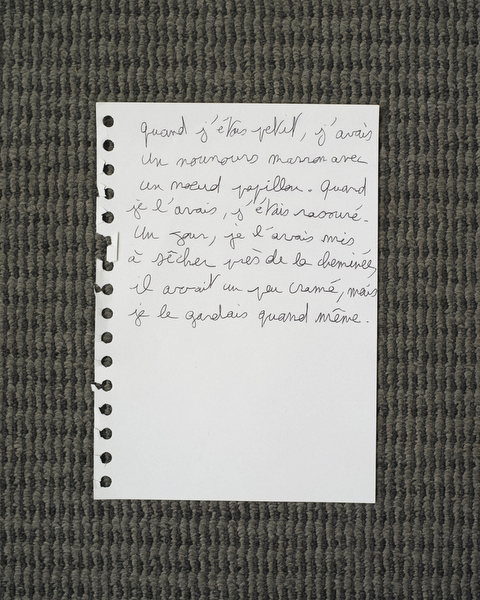 quand j'étais petit, j'avais
un nounours marron avec
un noeud papillon. Quand
je l'avais, j'étais rassuré.
Un jour, je l'avais mis
à sécher près de la cheminée,
il avait un peu cramé, mais
je le gardais quand même.